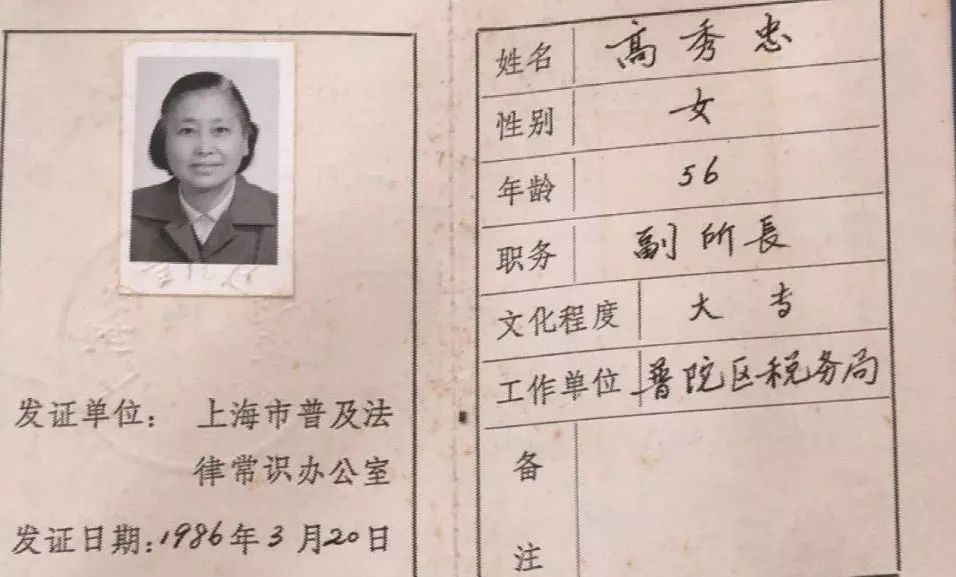 发证单位： 上海市普及法
律常识办公室
发证日期：1986年3月20日
姓名 高秀忠
性别 女
年龄 56
职务 副所長
文化程度 大专
工作单位 普院区税务局
备
注